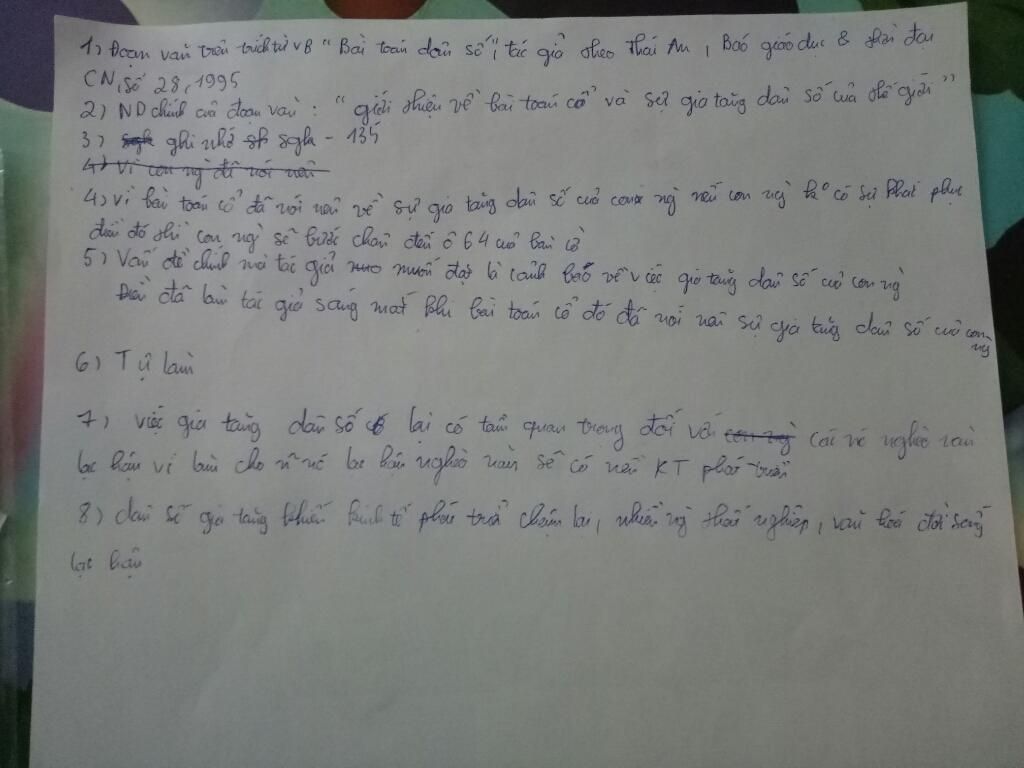 1) Đoạn văn trên trích từ VB "Bài toán dân số", tác giả theo Thái An, Báo giáo dục & thời đại
CN, số 28, 1995
2) ND chính của đoạn văn: "giới thiệu về bài toán cổ và sự gia tăng dân số của thế giới"
3) ghi nhớ sgk - 135
4) Vì con ng đã nói nên
4) vì bài toán cổ đã nói nên về sự gia tăng dân số của con ng nếu con ng k° có sự khắc phục
điều đó thì con ng sẽ bước chân đến ô 64 của bàn cờ
5) Vấn đề chính mà tác giả muốn đạt là cảnh báo về việc gia tăng dân số của con ng
đã làm tác giả sáng mắt khi bài toán cổ đó đã nói nên sự gia tăng dân số của con
ng
6) Tự làm
7) việc gia tăng dân số lại có tầm quan trọng đối với con ng các nc nghèo nàn
lạc hậu vì làm cho n nc lạc hậu nghèo nàn sẽ có nền KT phát triển
8) dân số gia tăng khiến kinh tế phát triển chậm lại, nhiều ng thất nghiệp, văn hoá đời sống
lạc hậu